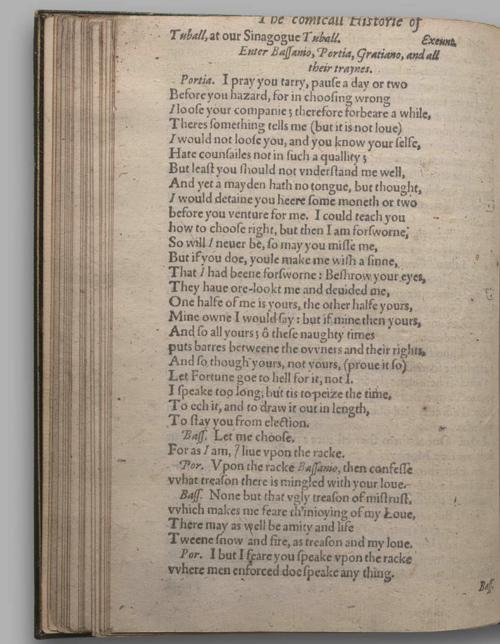 The comicall Historie of
Tuball, at our Sinagogue Tuball. Exeunt.
Enter Baſſanio, Portia, Gratiano, and all
their traynes.
Portia. I pray you tarry, pauſe a day or two
Before you hazard, for in chooſing wrong
I looſe your companie; therefore forbeare a while,
Theres ſomething tells me (but it is not loue)
I would not looſe you, and you know your ſelfe,
Hate counſailes not in ſuch a quallity;
But leaſt you ſhould not vnderſtand me well,
And yet a mayden hath no tongue, but thought,
I would detaine you heere ſome moneth or two
before you venture for me. I could teach you
how to chooſe right, but then I am forſworne,
So will I neuer be, ſo may you miſſe me,
But if you doe, youle make me wiſh a ſinne,
That I had beene forſworne: Beſhrow your eyes,
They haue ore-lookt me and deuided me,
One halfe of me is yours, the other halfe yours,
Mine owne I would ſay: but if mine then yours,
And ſo all yours; ô theſe naughty times
puts barres betweene the ovvners and their rights,
And ſo though yours, not yours, (proue it ſo)
Let Fortune goe to hell for it, not I.
I ſpeake too long, but tis to peize the time,
To ech it, and to draw it out in length,
To ſtay you from election.
Baſſ. Let me chooſe.
For as I am, I liue vpon the racke.
Por. Vpon the racke Baſſanio, then confeſſe
vvhat treaſon there is mingled with your loue.
Baſſ. None but that vgly treaſon of miſtruſt,
vvhich makes me feare th'inioying of my Loue,
There may as well be amity and life
Tweene ſnow and fire, as treaſon and my loue.
Por. I but I feare you ſpeake vpon the racke
vvhere men enforced doe ſpeake any thing.
Baſſ.